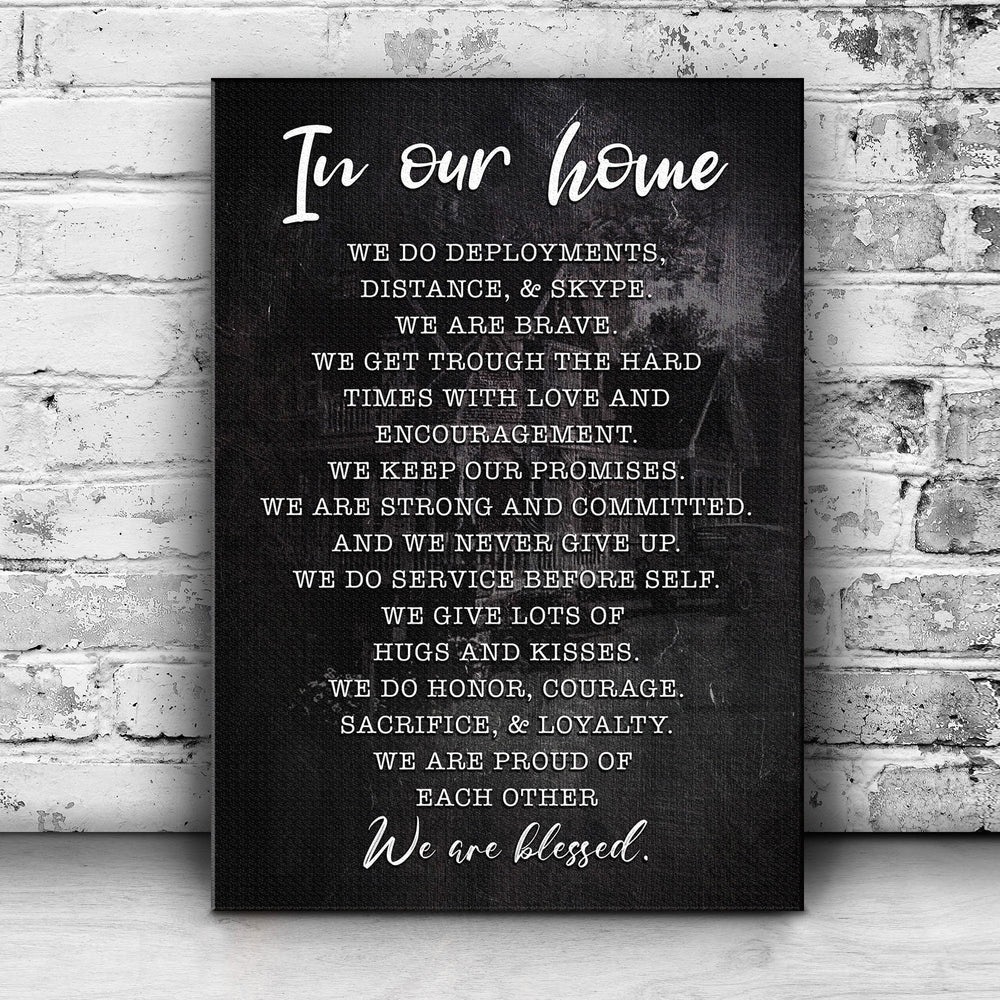 In our home
WE DO DEPLOYMENTS,
DISTANCE, & SKYPE.
WE ARE BRAVE.
WE GET TROUGH THE HARD
TIMES WITH LOVE AND
ENCOURAGEMENT.
WE KEEP OUR PROMISES.
WE ARE STRONG AND COMMITTED.
AND WE NEVER GIVE UP.
WE DO SERVICE BEFORE SELF.
WE GIVE LOTS OF
HUGS AND KISSES.
WE DO HONOR, COURAGE.
SACRIFICE, & LOYALTY.
WE ARE PROUD OF
EACH OTHER
We are blessed.